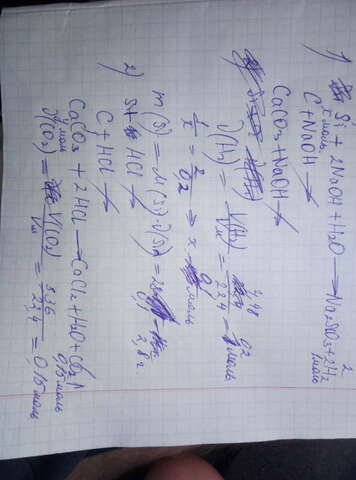 1) Si + 2NaOH + H₂O → Na₂SiO₃ + 2H₂
x моль
2 моль
C + NaOH
CaCO₃ + NaOH
ν(H₂) = V(H₂) / Vм = 4,48 / 22,4 = 0,2 моль
1/x = 2/0,2 ⇒ x = 0,1 моль
m(Si) = M(Si) ν(Si) = 2,8 г.
2) Si + HCl
C + HCl
CaCO₃ + 2HCl → CaCl₂ + H₂O + CO₂↑
y моль
0,15 моль
ν(CO₂) = V(CO₂) / Vм = 3,36 / 22,4 = 0,15 моль